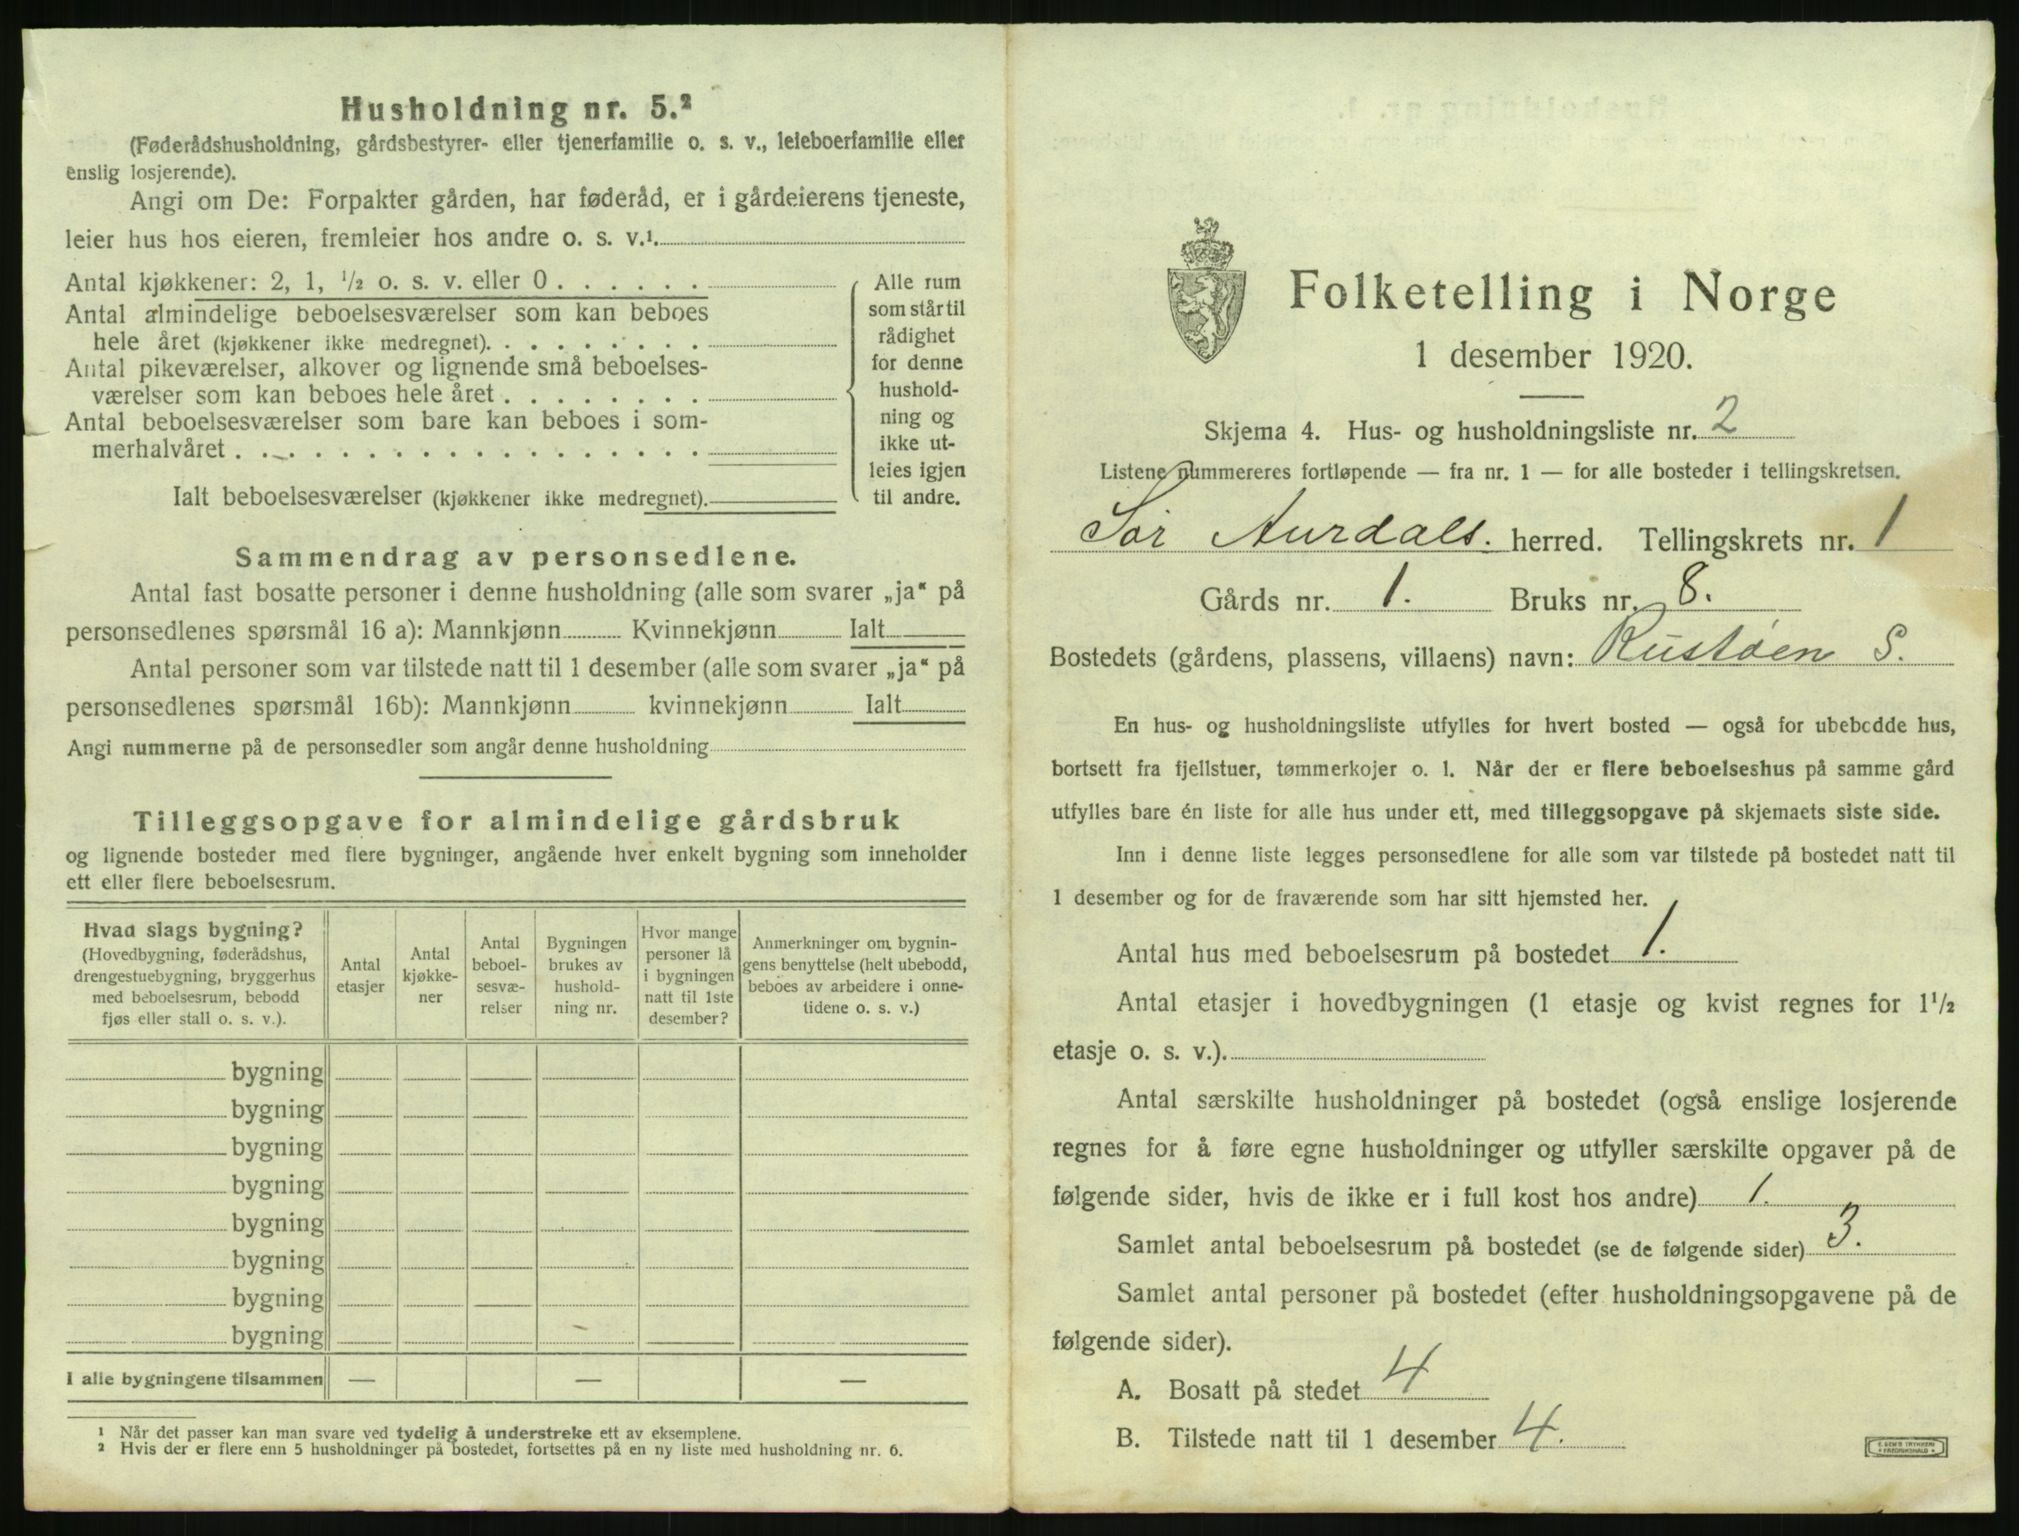 Husholdning nr. 5.²
(Føderådshusholdning, gårdsbestyrer- eller tjenerfamilie o. s. v., leieboerfamilie eller
enslig losjerende).
Angi om De: Forpakter gården, har føderåd, er i gårdeierens tjeneste,
leier hus hos eieren, fremleier hos andre o. s. v.¹
Antal kjøkkener: 2, 1, ½ o. s. v. eller 0
Antal almindelige beboelsesværelser som kan beboes
hele året (kjøkkener ikke medregnet).
Antal pikeværelser, alkover og lignende små beboelses-
værelser som kan beboes hele året
Antal beboelsesværelser som bare kan beboes i som-
merhalvåret
Ialt beboelsesværelser (kjøkkener ikke medregnet).
Alle rum
som står til
rådighet
for denne
hushold-
ning og
ikke ut-
leies igjen
til andre.
Sammendrag av personsedlene.
Antal fast bosatte personer i denne husholdning (alle som svarer „ja“ på
personsedlenes spørsmål 16 a): Mannkjønn Kvinnekjønn Ialt
Antal personer som var tilstede natt til 1 desember (alle som svarer „ja“ på
personsedlenes spørsmål 16b): Mannkjønn kvinnekjønn Ialt
Angi nummerne på de personsedler som angår denne husholdning
Tilleggsopgave for almindelige gårdsbruk
og lignende bosteder med flere bygninger, angående hver enkelt bygning som inneholder
ett eller flere beboelsesrum.
Hvad slags bygning?
(Hovedbygning, føderådshus,
drengestuebygning, bryggerhus
med beboelsesrum, bebodd
fjøs eller stall o. s. v.).
Antal
etasjer
Antal
kjøkke-
ner
Antal
beboel-
sesvæ-
relser
Bygningen
brukes av
hushold-
ning nr.
Hvor mange
personer lå
i bygningen
natt til 1ste
desember?
Anmerkninger om bygnin-
gens benyttelse (helt ubebodd,
beboes av arbeidere i onne-
tidene o. s. v.)
bygning
bygning
bygning
bygning
bygning
bygning
bygning
bygning
I alle bygningene tilsammen — — —
¹ Når det passer kan man svare ved tydelig å understreke ett av eksemplene.
² Hvis der er flere enn 5 husholdninger på bostedet, fortsettes på en ny liste med husholdning nr. 6.
Folketelling i Norge
1 desember 1920.
Skjema 4. Hus- og husholdningsliste nr. 2
Listene nummereres fortløpende — fra nr. 1 — for alle bosteder i tellingskretsen.
Sør Aurdals. herred. Tellingskrets nr. 1
Gårds nr. 1. Bruks nr. 8.
Bostedets (gårdens, plassens, villaens) navn: Rustøen S.
En hus- og husholdningsliste utfylles for hvert bosted — også for ubebodde hus,
bortsett fra fjellstuer, tømmerkojer o. l. Når der er flere beboelseshus på samme gård
utfylles bare én liste for alle hus under ett, med tilleggsopgave på skjemaets siste side.
Inn i denne liste legges personsedlene for alle som var tilstede på bostedet natt til
1 desember og for de fraværende som har sitt hjemsted her.
Antal hus med beboelsesrum på bostedet 1.
Antal etasjer i hovedbygningen (1 etasje og kvist regnes for 1½
etasje o. s. v.).
Antal særskilte husholdninger på bostedet (også enslige losjerende
regnes for å føre egne husholdninger og utfyller særskilte opgaver på de
følgende sider, hvis de ikke er i full kost hos andre) 1.
Samlet antal beboelsesrum på bostedet (se de følgende sider) 3.
Samlet antal personer på bostedet (efter husholdningsopgavene på de
følgende sider).
A. Bosatt på stedet 4
B. Tilstede natt til 1 desember 4.